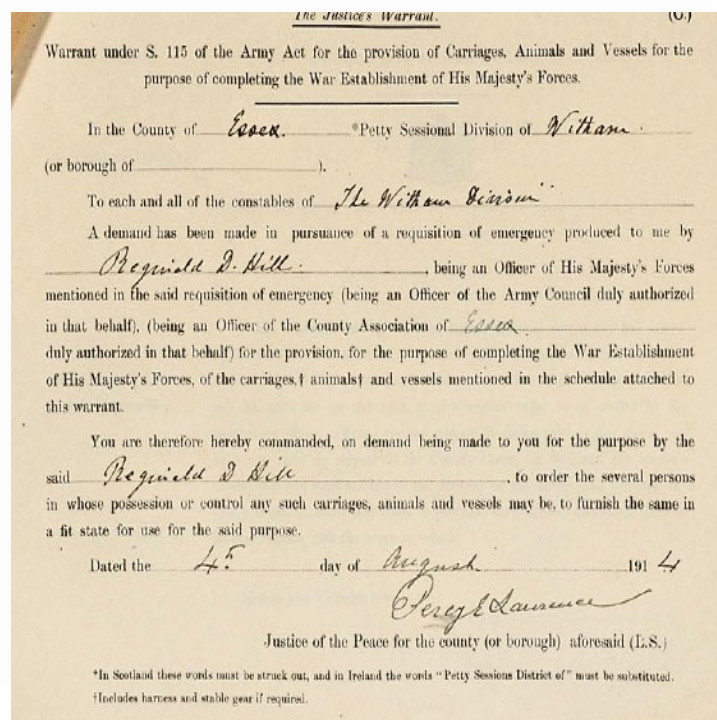 The Justice's Warrant. (C.)
Warrant under S. 115 of the Army Act for the provision of Carriages, Animals and Vessels for the
purpose of completing the War Establishment of His Majesty's Forces.
In the County of Essex. *Petty Sessional Division of Witham.
(or borough of ).
To each and all of the constables of The Witham Division
A demand has been made in pursuance of a requisition of emergency produced to me by
Reginald D. Hill. , being an Officer of His Majesty's Forces
mentioned in the said requisition of emergency (being an Officer of the Army Council duly authorized
in that behalf), (being an Officer of the County Association of Essex
duly authorized in that behalf) for the provision, for the purpose of completing the War Establishment
of His Majesty's Forces, of the carriages,† animals† and vessels mentioned in the schedule attached to
this warrant.
You are therefore hereby commanded, on demand being made to you for the purpose by the
said Reginald D Hill , to order the several persons
in whose possession or control any such carriages, animals and vessels may be, to furnish the same in
a fit state for use for the said purpose.
Dated the 4th day of August 1914
Percy E Laurence
Justice of the Peace for the county (or borough) aforesaid (L.S.)
*In Scotland these words must be struck out, and in Ireland the words "Petty Sessions District of" must be substituted.
†Includes harness and stable gear if required.